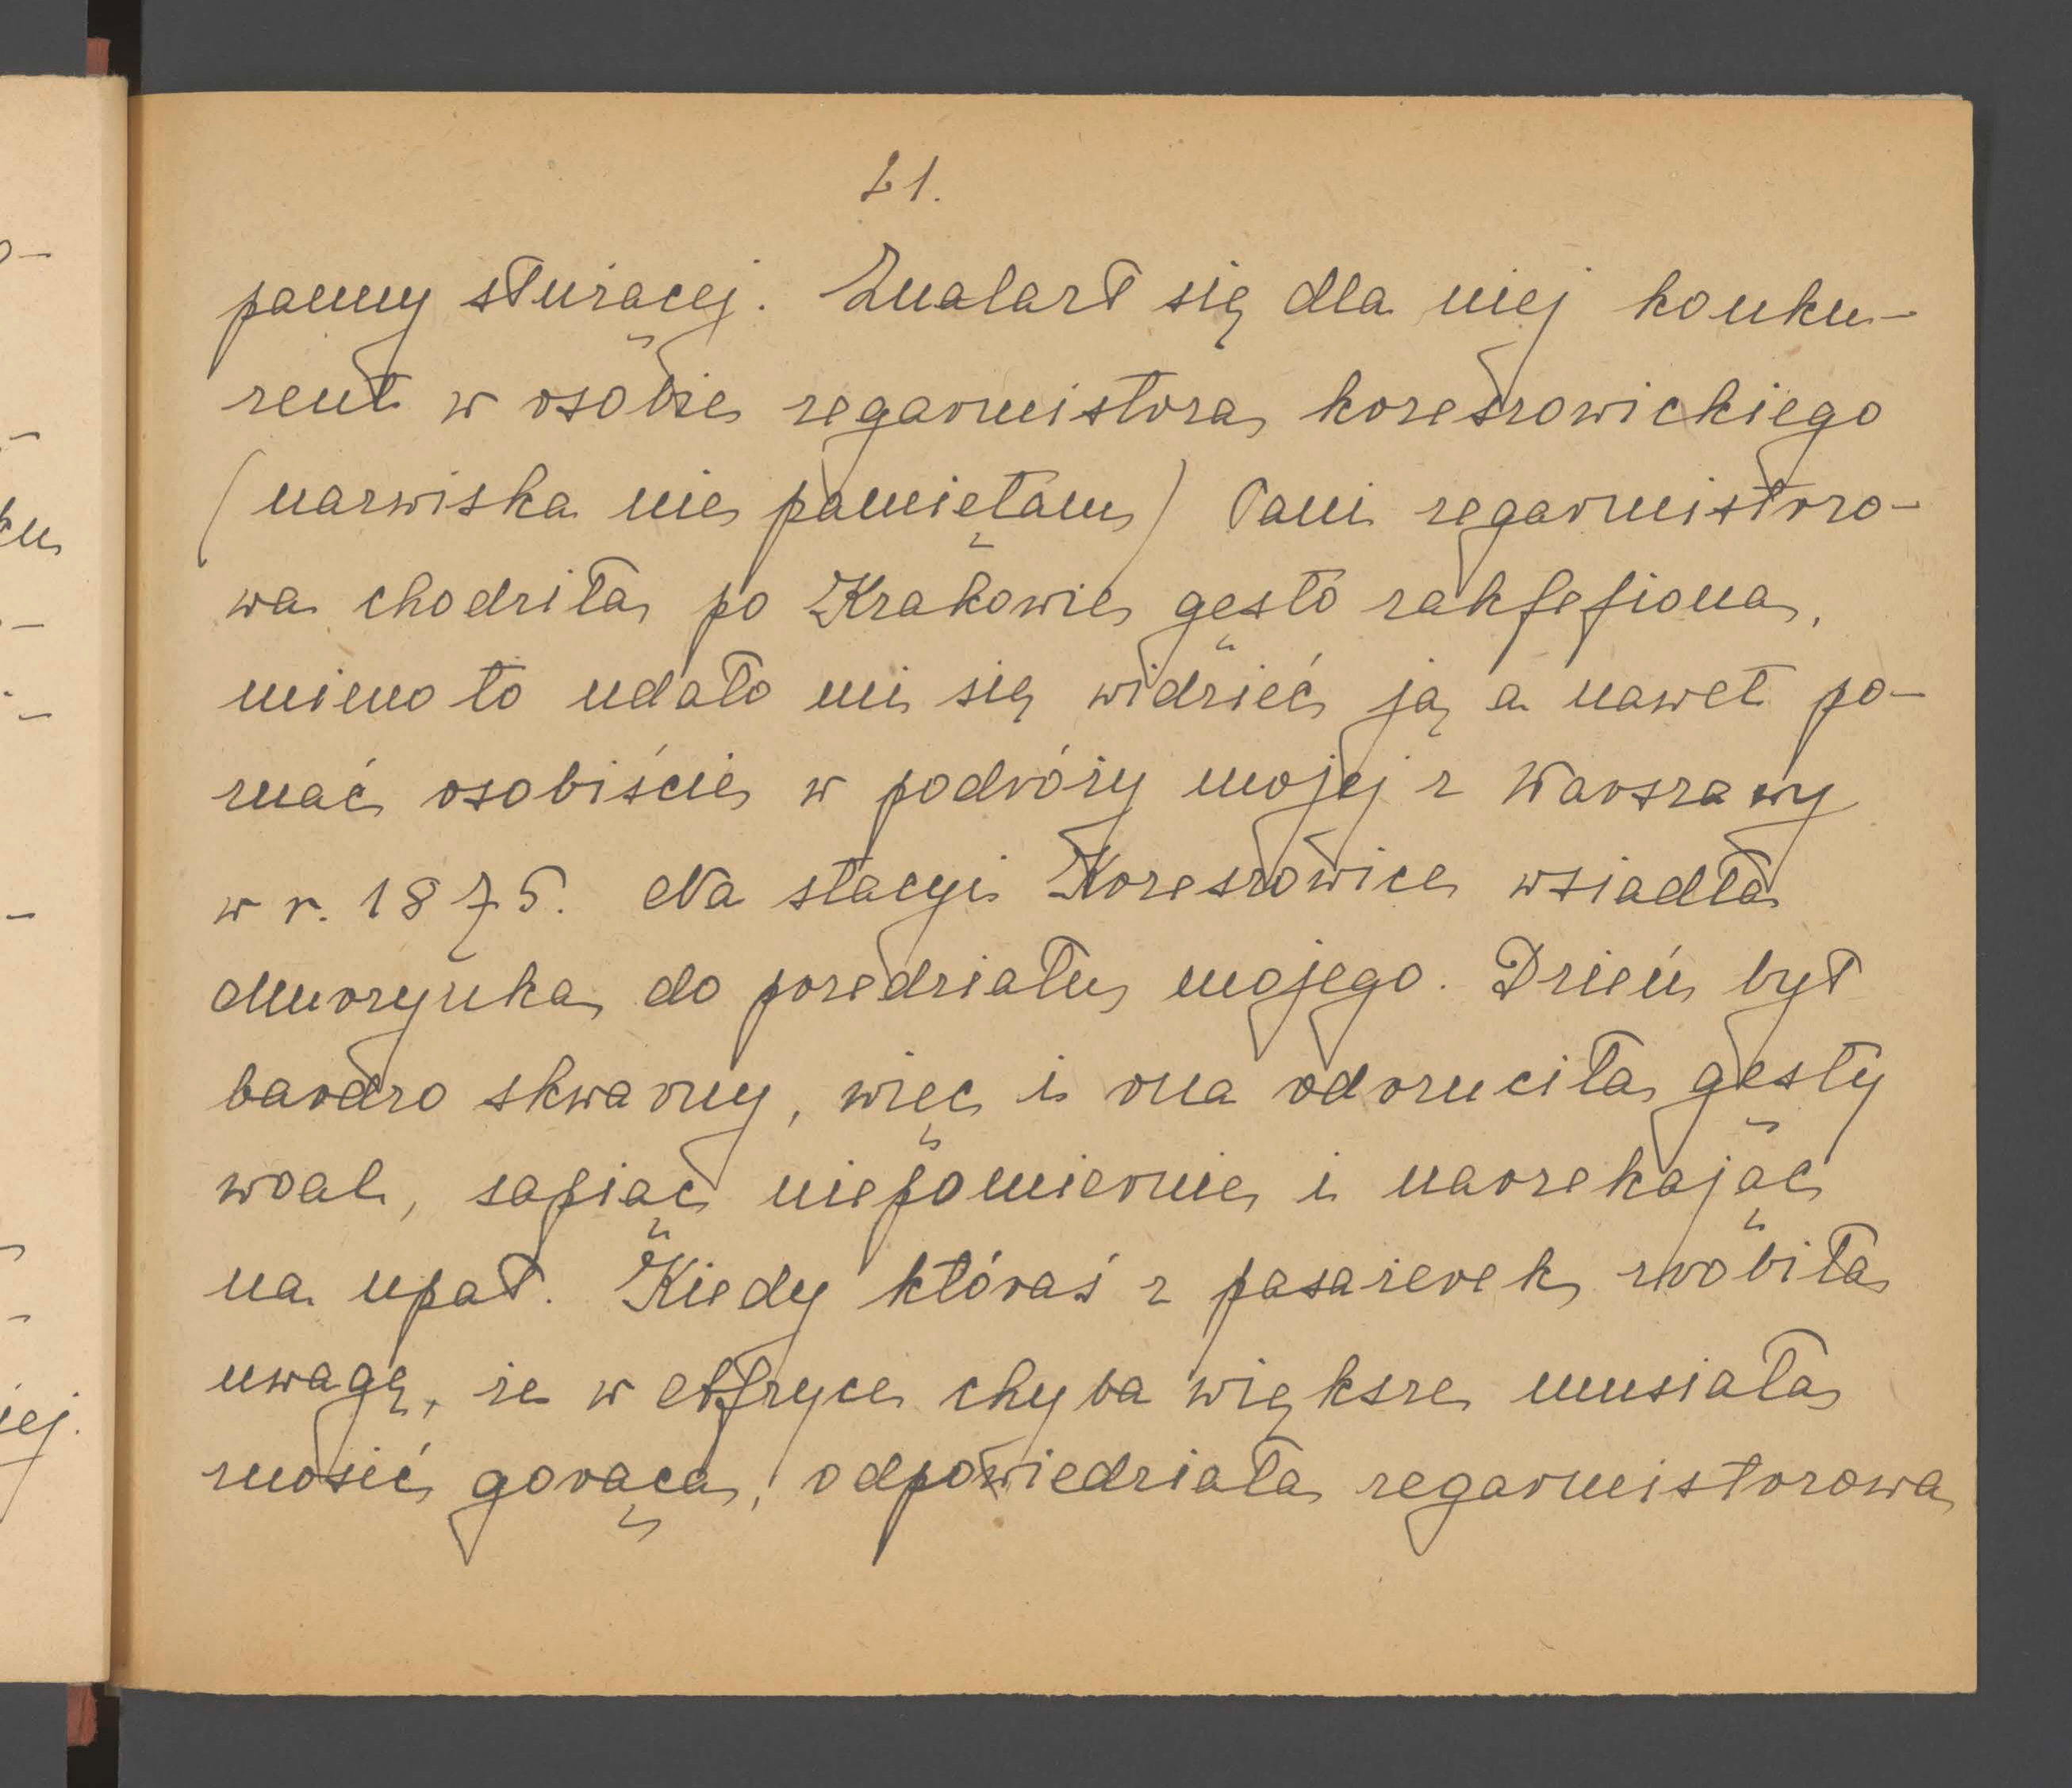 21.
panny służącej. Znalazł się dla niej konku-
rent w osobie zegarmistrza krzeszowickiego
(nazwiska nie pamiętam) Pani zegarmistrzo-
wa chodziła po Krakowie gęsto zakfefiona,
mimo to udało mi się widzieć ją a nawet po-
znać osobiście w podróży mojej z Warszawy
w r. 1875. Na stacyi Krzeszowice wsiadła
Murzynka do przedziału mojego. Dzień był
bardzo skwarny, więc i ona odrzuciła gęsty
woal, sapiąc niepomiernie i narzekając
na upał. Kiedy któraś z pasażerek zrobiła
uwagę, że w Afryce chyba większe musiała
znosić gorąca, odpowiedziała zegarmistrzowa